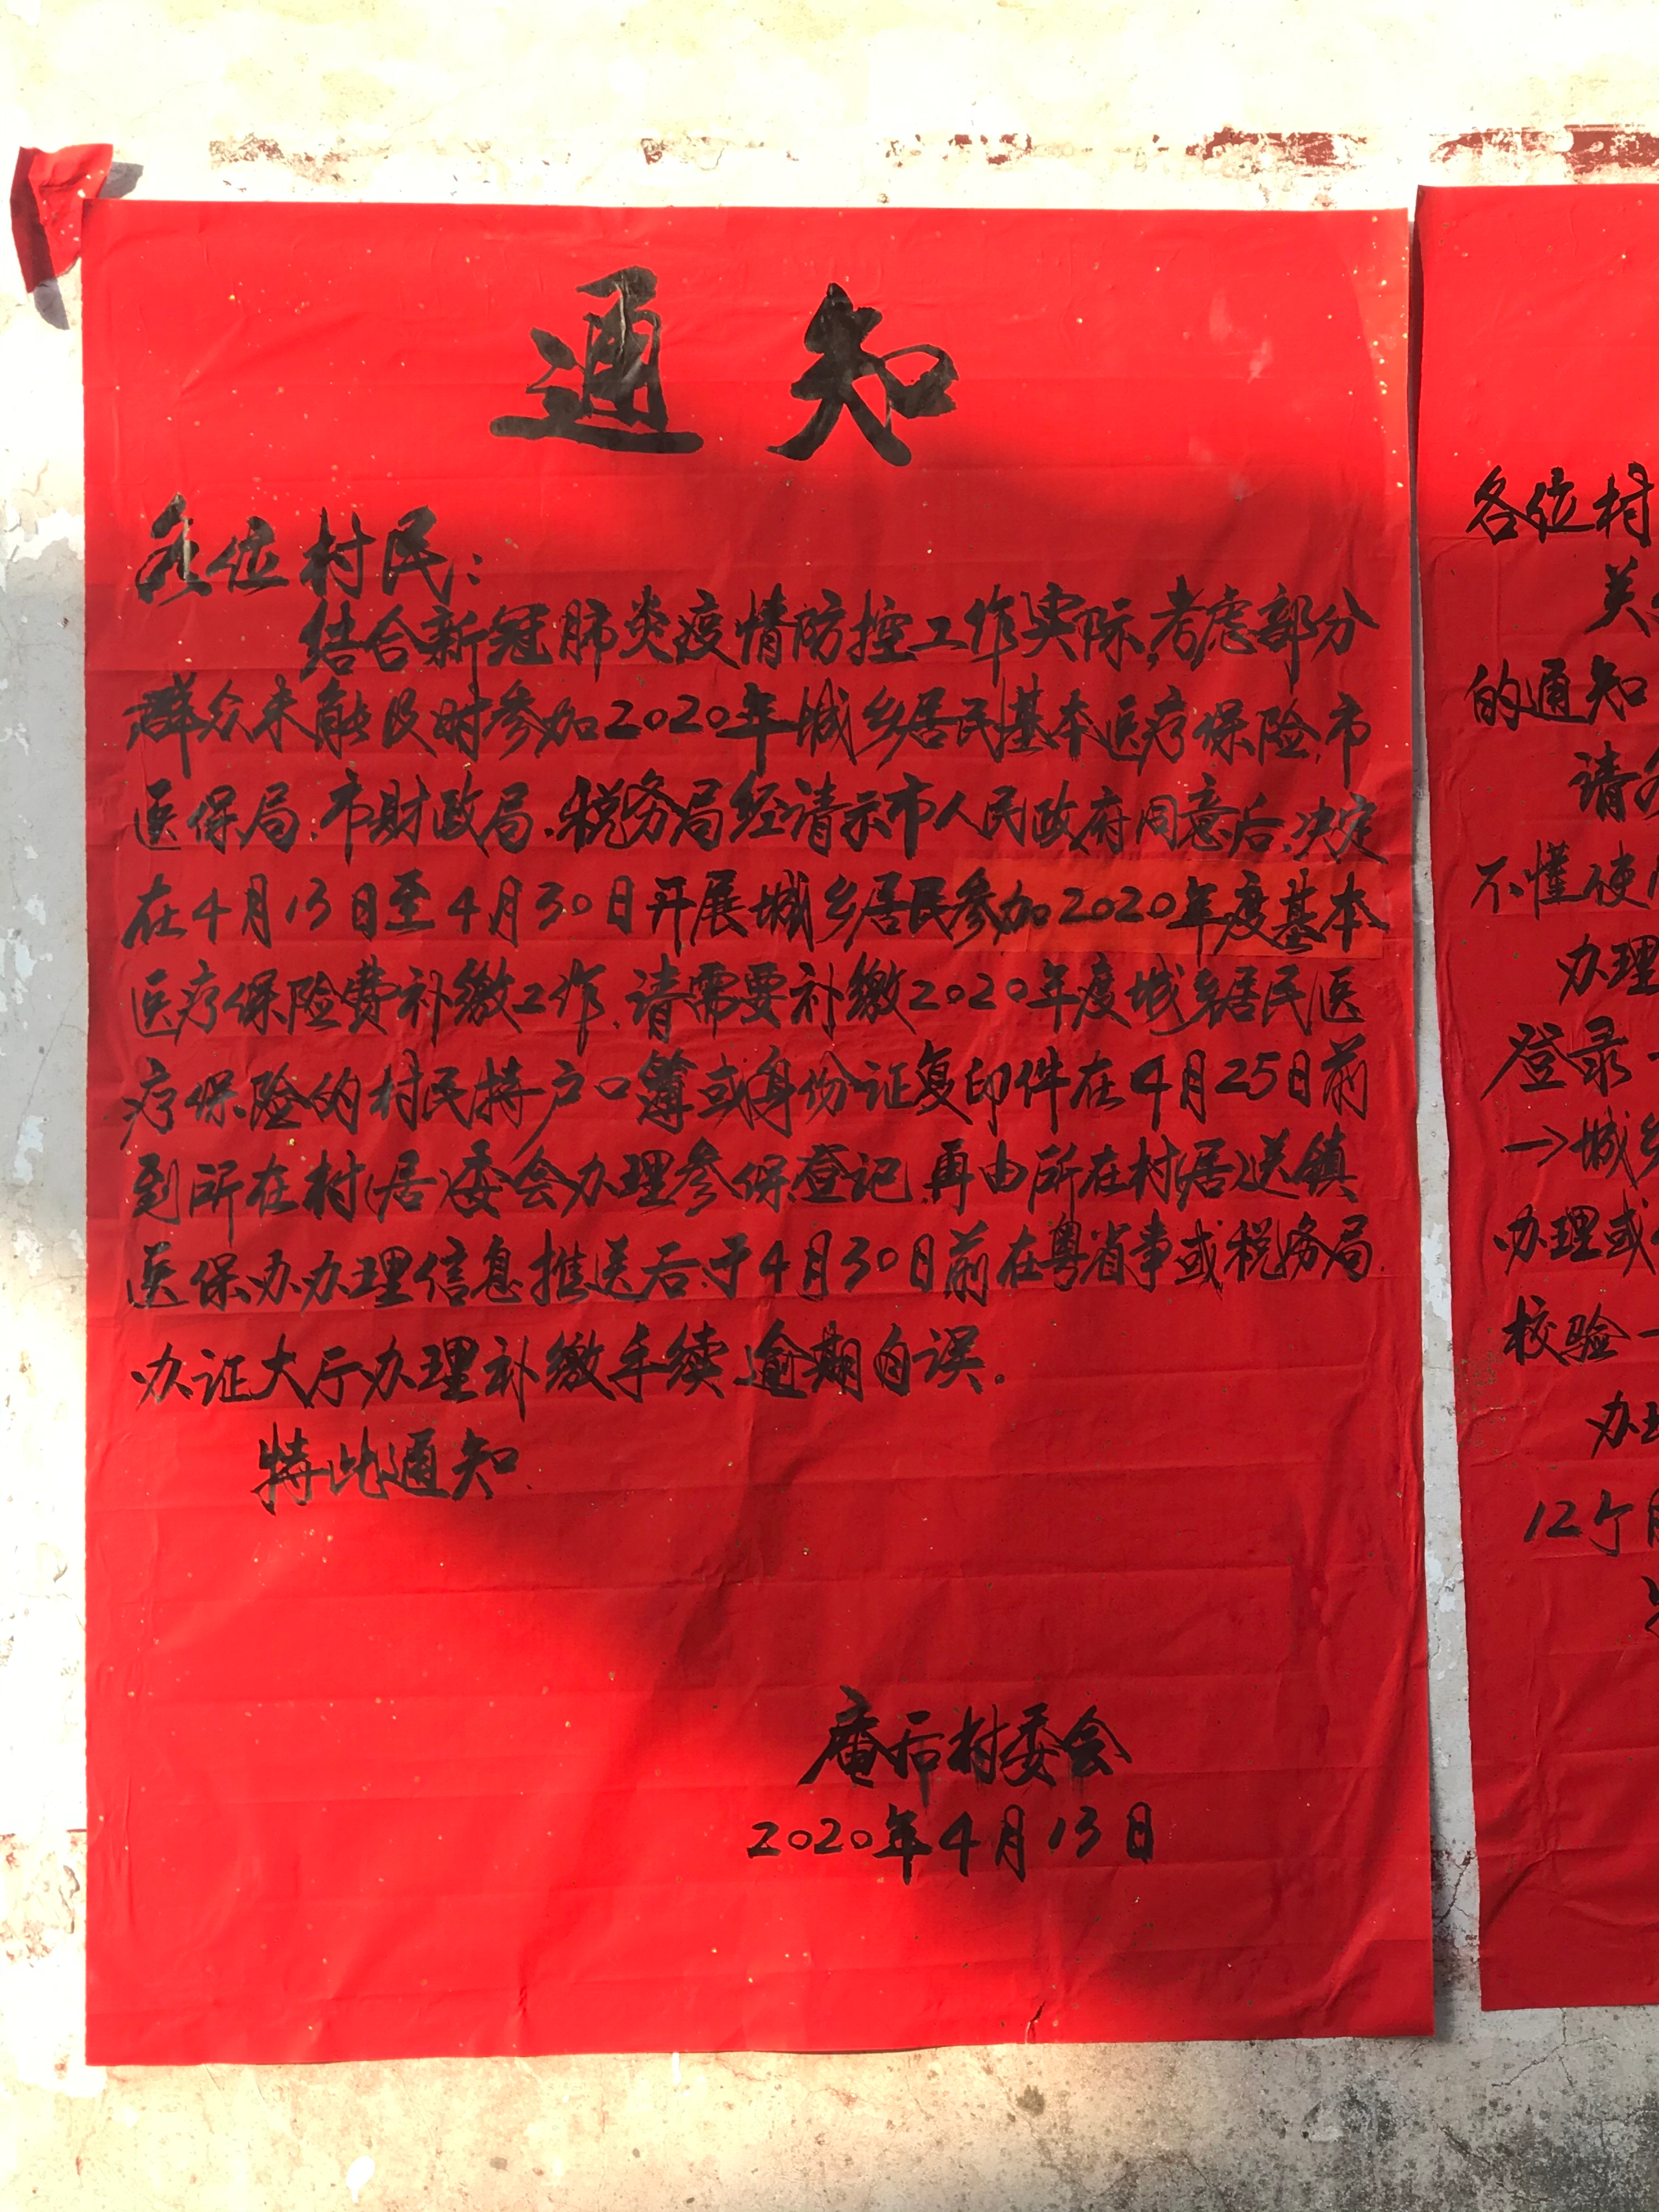 通知
各位村民：
结合新冠肺炎疫情防控工作实际，考虑部分
群众未能及时参加2020年城乡居民基本医疗保险，市
医保局、市财政局、税务局经请示市人民政府同意后，决定
在4月13日至4月30日开展城乡居民参加2020年度基本
医疗保险费补缴工作，请需要补缴2020年度城乡居民医
疗保险的村民持户口簿或身份证复印件在4月25日前
到所在村（居）委会办理参保登记，再由所在村（居）送镇
医保办办理信息推送后，于4月30日前在粤省事或税务局
办证大厅办理补缴手续，逾期自误。
特此通知
庵后村委会
2020年4月13日
各位村
关
的通知
请
不懂使
办理
登录
→城乡
办理或
校验
办理
12个月